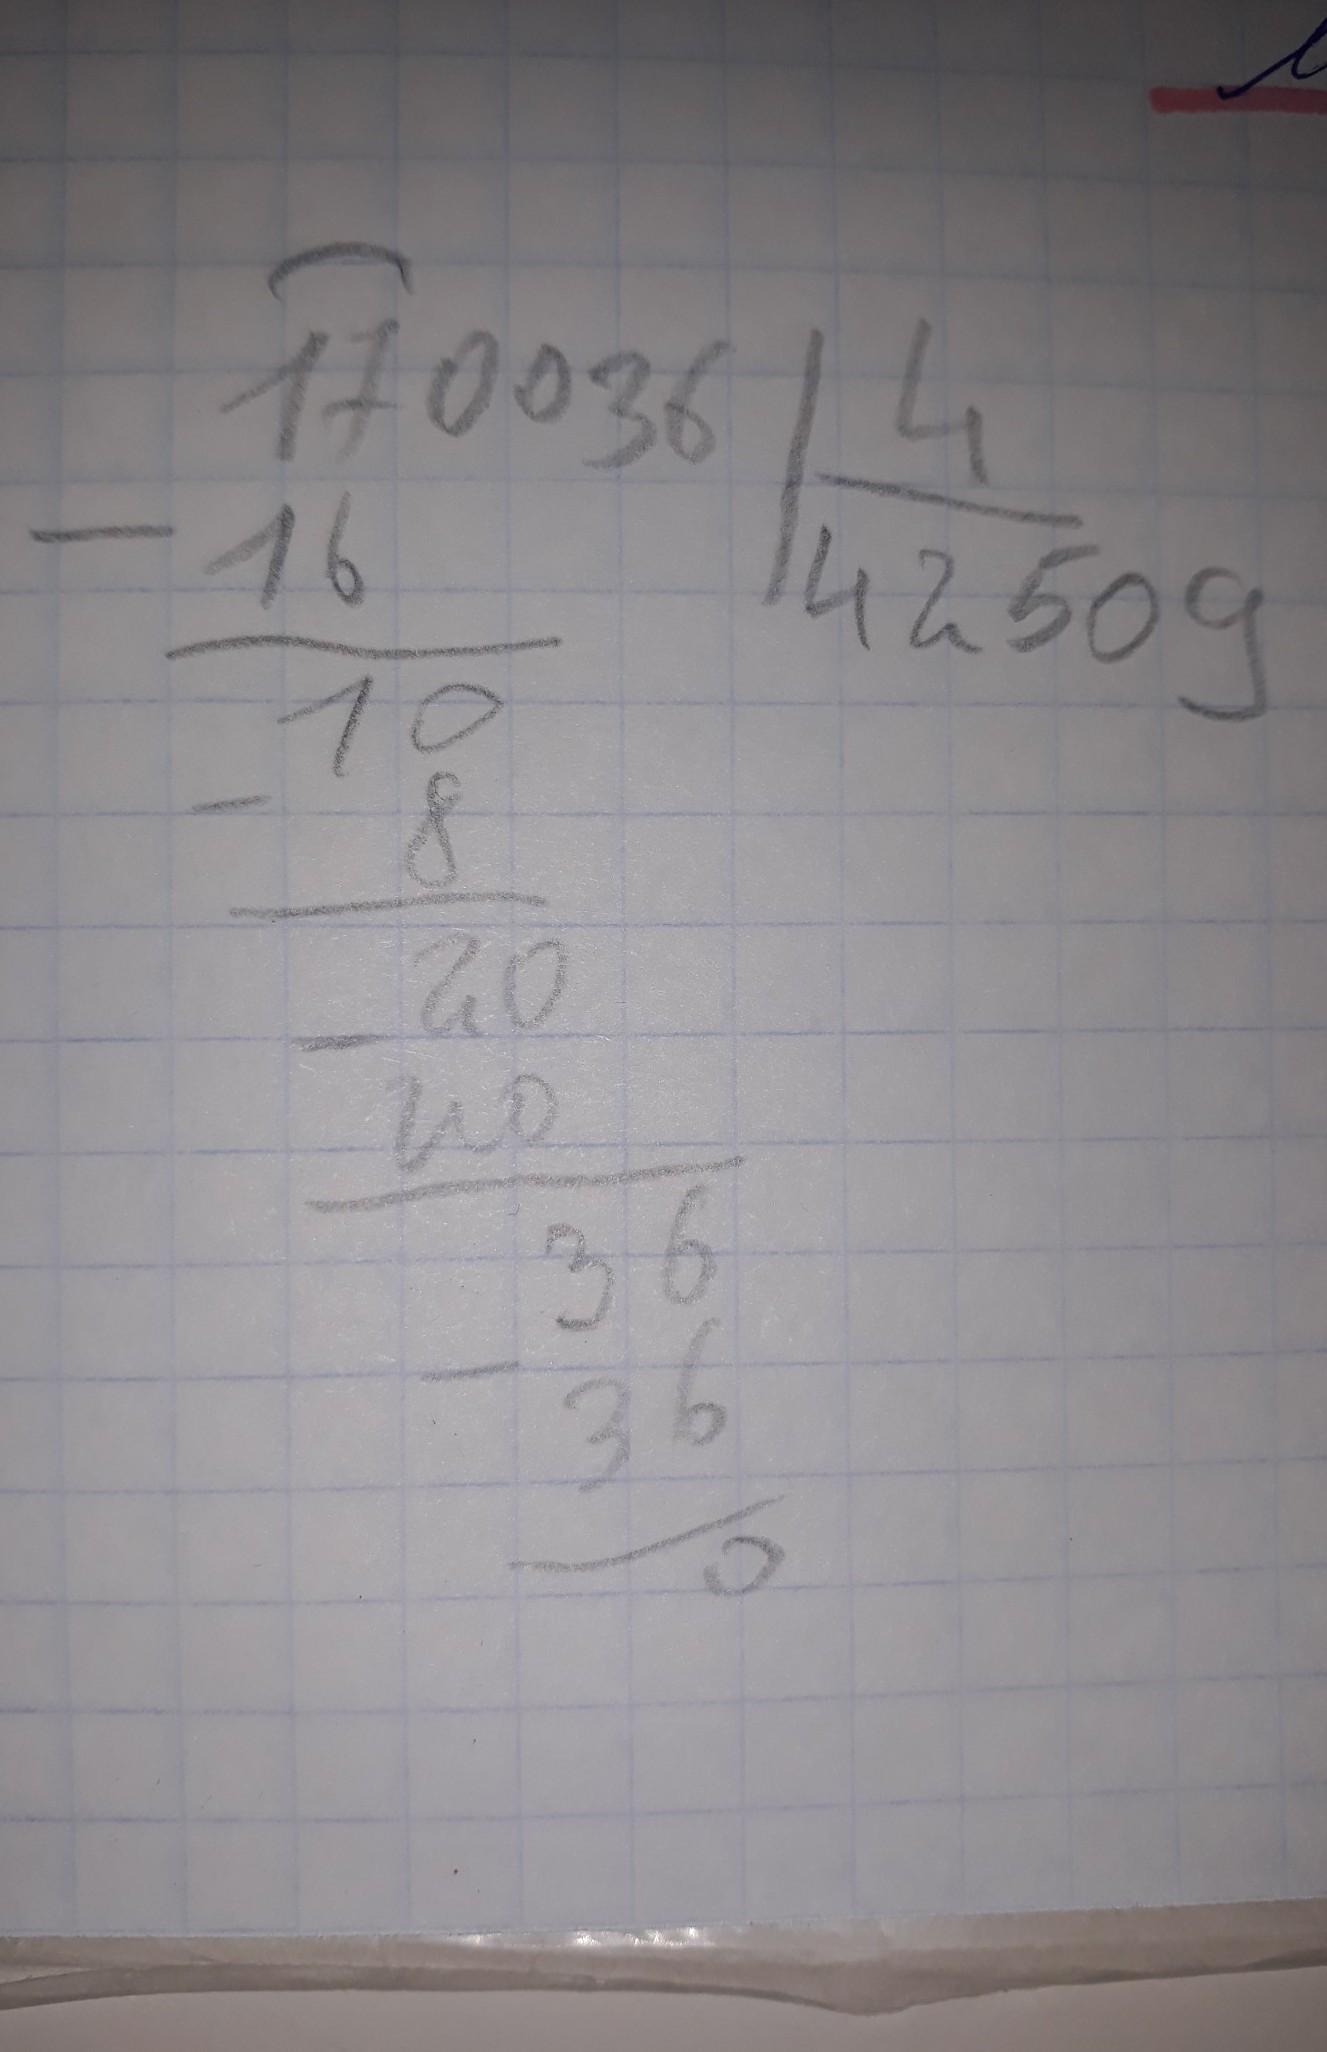 170036 4
- 16 42509
10
- 8
20
- 20
36
- 36
0